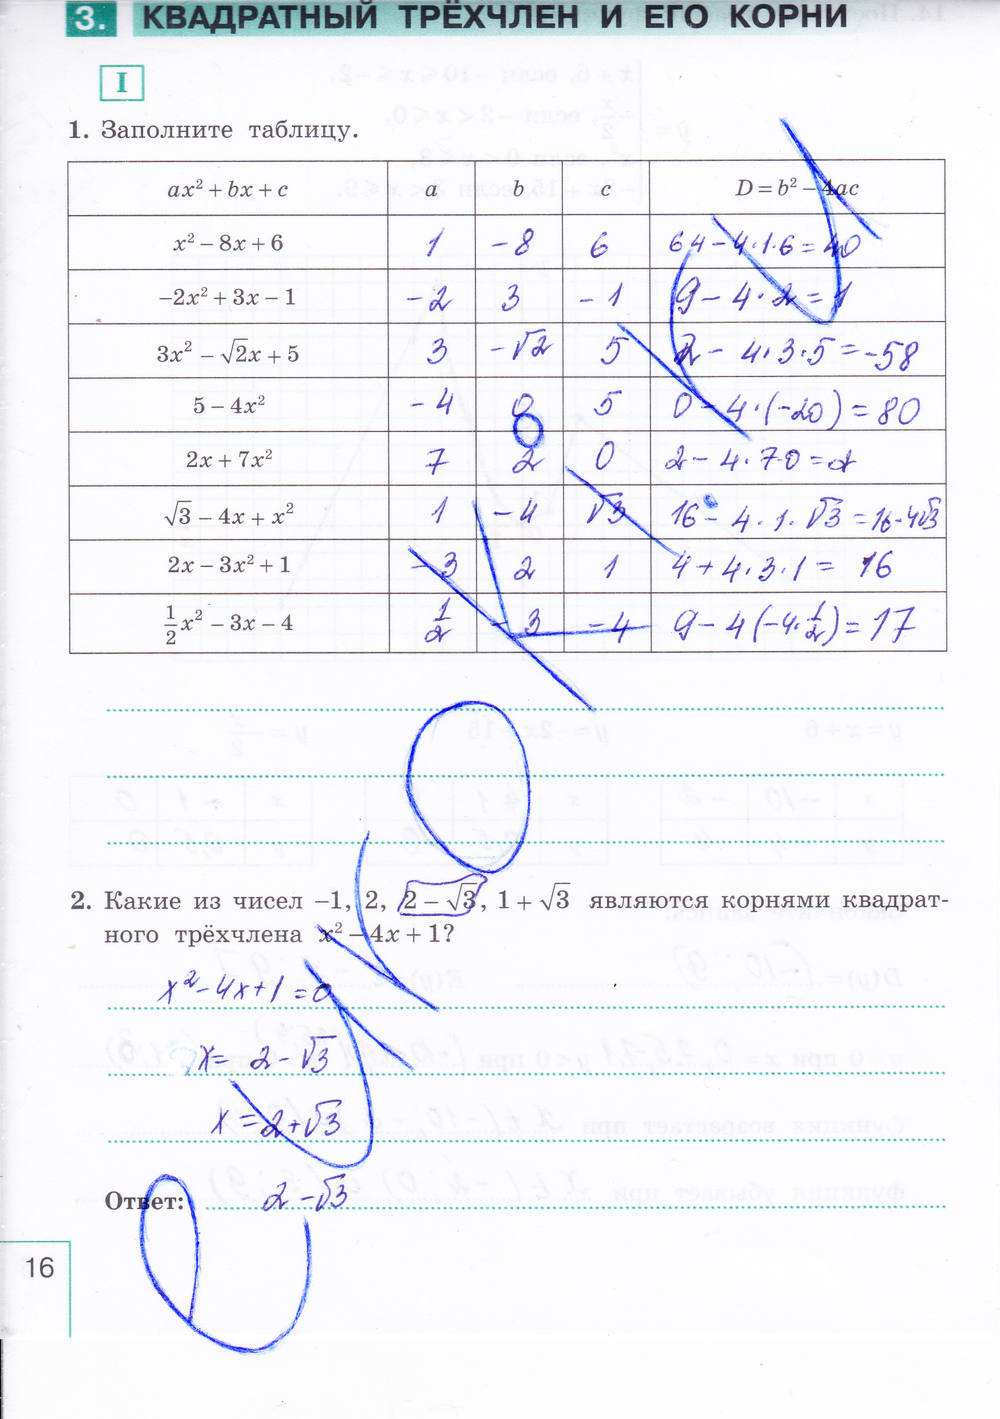 3. КВАДРАТНЫЙ ТРЁХЧЛЕН И ЕГО КОРНИ
I
1. Заполните таблицу.
ax² + bx + c a b c D = b² – 4ac
x² – 8x + 6 1 -8 6 64-4·1·6=40
–2x² + 3x – 1 -2 3 -1 9-4·2=1
3x² – √2x + 5 3 -√2 5 2-4·3·5=-58
5 – 4x² -4 0 5 0-4·(-20)=80
2x + 7x² 7 2 0 2-4·7·0=2
√3 – 4x + x² 1 -4 √3 16-4·1·√3=16-4√3
2x – 3x² + 1 -3 2 1 4+4·3·1=16
1/2x² – 3x – 4 1/2 -3 -4 9-4(-4·1/2)=17
2. Какие из чисел –1, 2, 2 – √3, 1 + √3 являются корнями квадрат-
ного трёхчлена x² – 4x + 1?
x²-4x+1=0
x= 2-√3
x=2+√3
Ответ: 2-√3
16